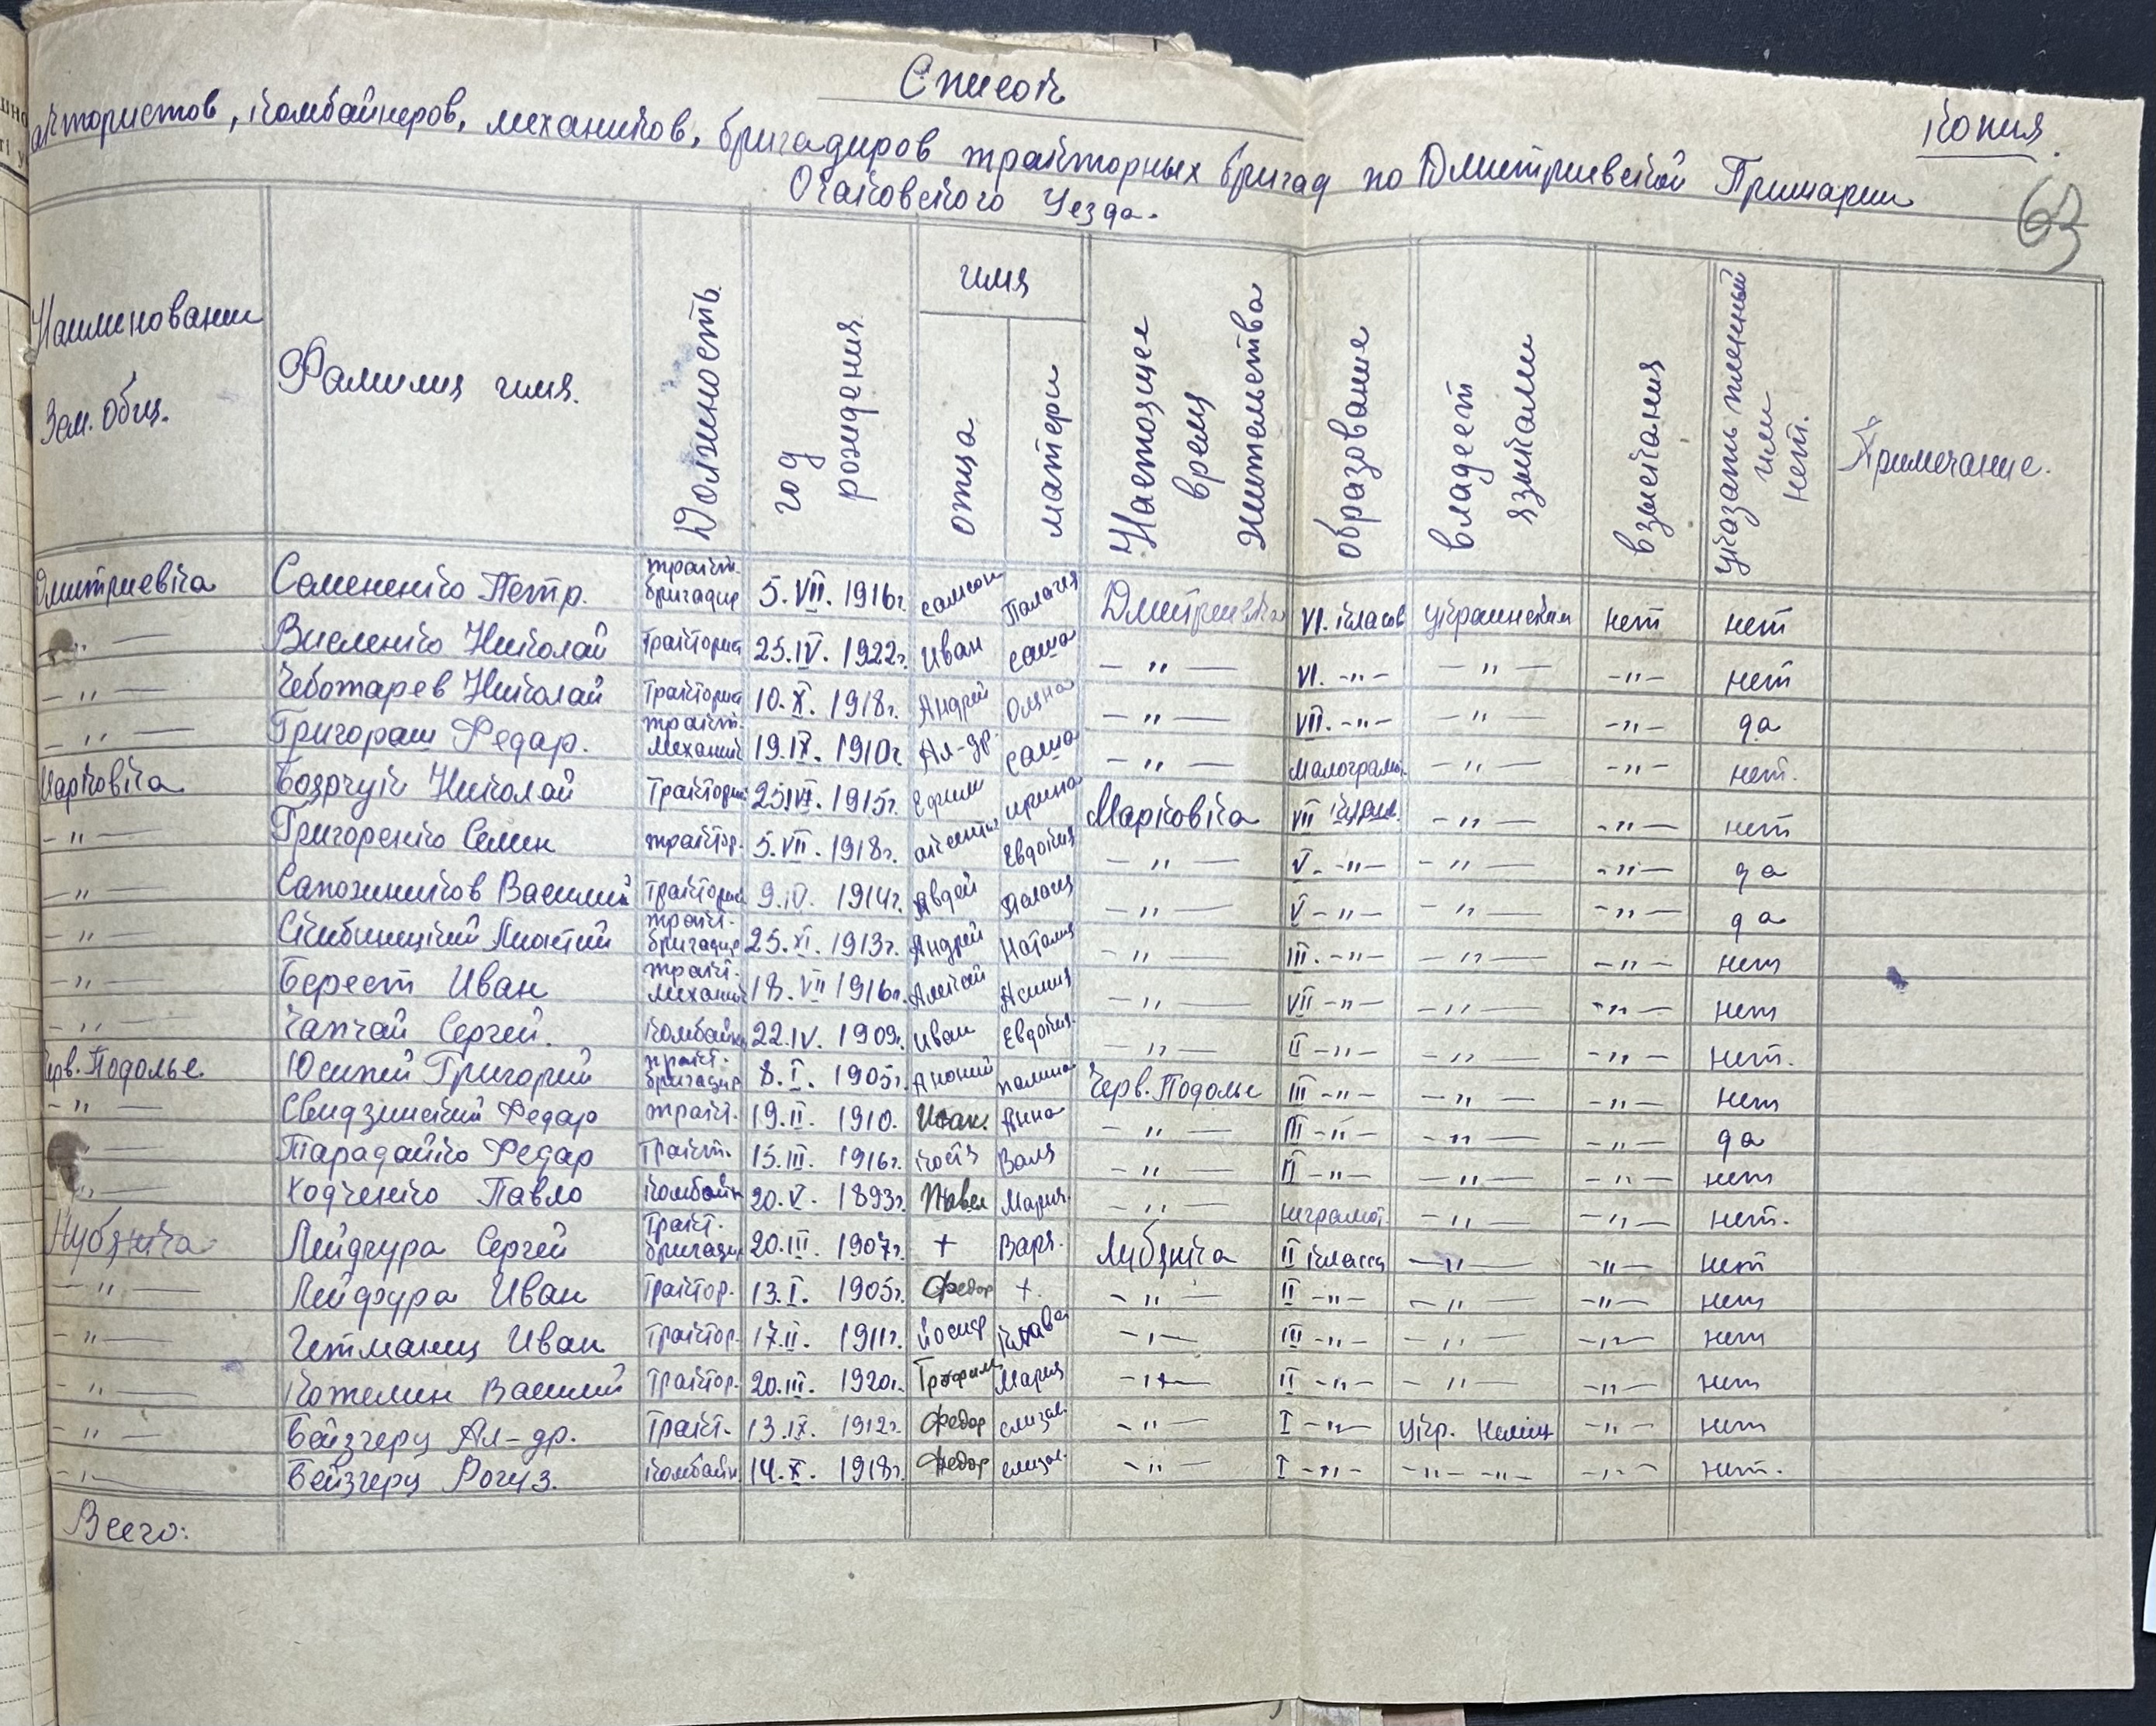 Список
Копия.
актористов, комбайнеров, механиков, бригадиров тракторных бригад по Дмитриевской Примарии
63
Очаковского Уезда.
Наименовании Зам. Общ. Фамилия имя. Должность год рождения имя отца матери Настоящее время жительства образование владеет языками взыскания указать пленный или нет. Примечание.
Дмитриевка Семененко Петр. тракт. бригадир 5. VII. 1916г. самсон Палагия Дмитриевка VI. класов украинским нет нет
— " — Висленко Николай Тракторист 25. IV. 1922г. Иван саша — " — VI. - " - — " — - " - нет
— " — Чеботарев Николай Тракторист 10. X. 1918г. Андрей — " — VII. - " - — " — - " - да
— " — Григораш Федар. тракт. механик 19. IX. 1910г Ал-др. саша — " — малограм. — " — - " - нет.
Марковка Николай Тракторист 25. VI. 1915г. Ефим ирина Марковка VII — " — - " - нет
— " — Григоренко Семен трактор. 5. VII. 1918г. Евдокия — " — V. - " - — " — - " - да
— " — Сапожников Василий Тракторист 9. IV. 1914г. Авдей Палагия — " — V - " - — " — - " - да
— " — тракт. бригадир 25. XI. 1913г. Андрей Наталия — " — III. - " - — " — - " - нет
— " — Берест Иван тракт. механик 18. VII 1916г. — " — VII - " - — " — - " - нет
— " — Чапчай Сергей. комбайн 22. IV. 1909г. Иван Евдокия — " — II - " - — " — - " - нет.
Черв. Подолье. Григорий тракт. бригадир 8. I. 1905г. Черв. Подолье III - " - — " — - " - нет
— " — Свидзинский Федар тракт. 19. II. 1910. Исак. Анна — " — III - " - — " — - " - да
— " — Тарадайко Федар Тракт. 15. III. 1916г. костя Валя — " — II - " - — " — - " - нет
— " — Ходченко Павло комбайн 20. V. 1893г. Павел Мария — " — неграмот. — " — - " - нет.
Лубянка Сергей Тракт. бригадир 20. III. 1907г. + Варя. Лубянка II класса — " — - " - нет
— " — Иван Трактор. 13. I. 1905г. Федор +. — " — II - " - — " — - " - нет
— " — Гетманец Иван Трактор. 17. II. 1911г. Йосиф клава — " — III - " - — " — - " - нет
— " — Кожемин Василий Трактор. 20. III. 1920г. Трофим Мария — " — II - " - — " — - " - нет
— " — Бейзгерц Ал-др. Тракт. 13. IX. 1912г. Федор елизав. — " — I - " - укр. немец - " - нет
— " — Бейзгерц комбайн 14. X. 1918г. Федор елизав. — " — I - " - - " - - " - - " - нет.
Всего: